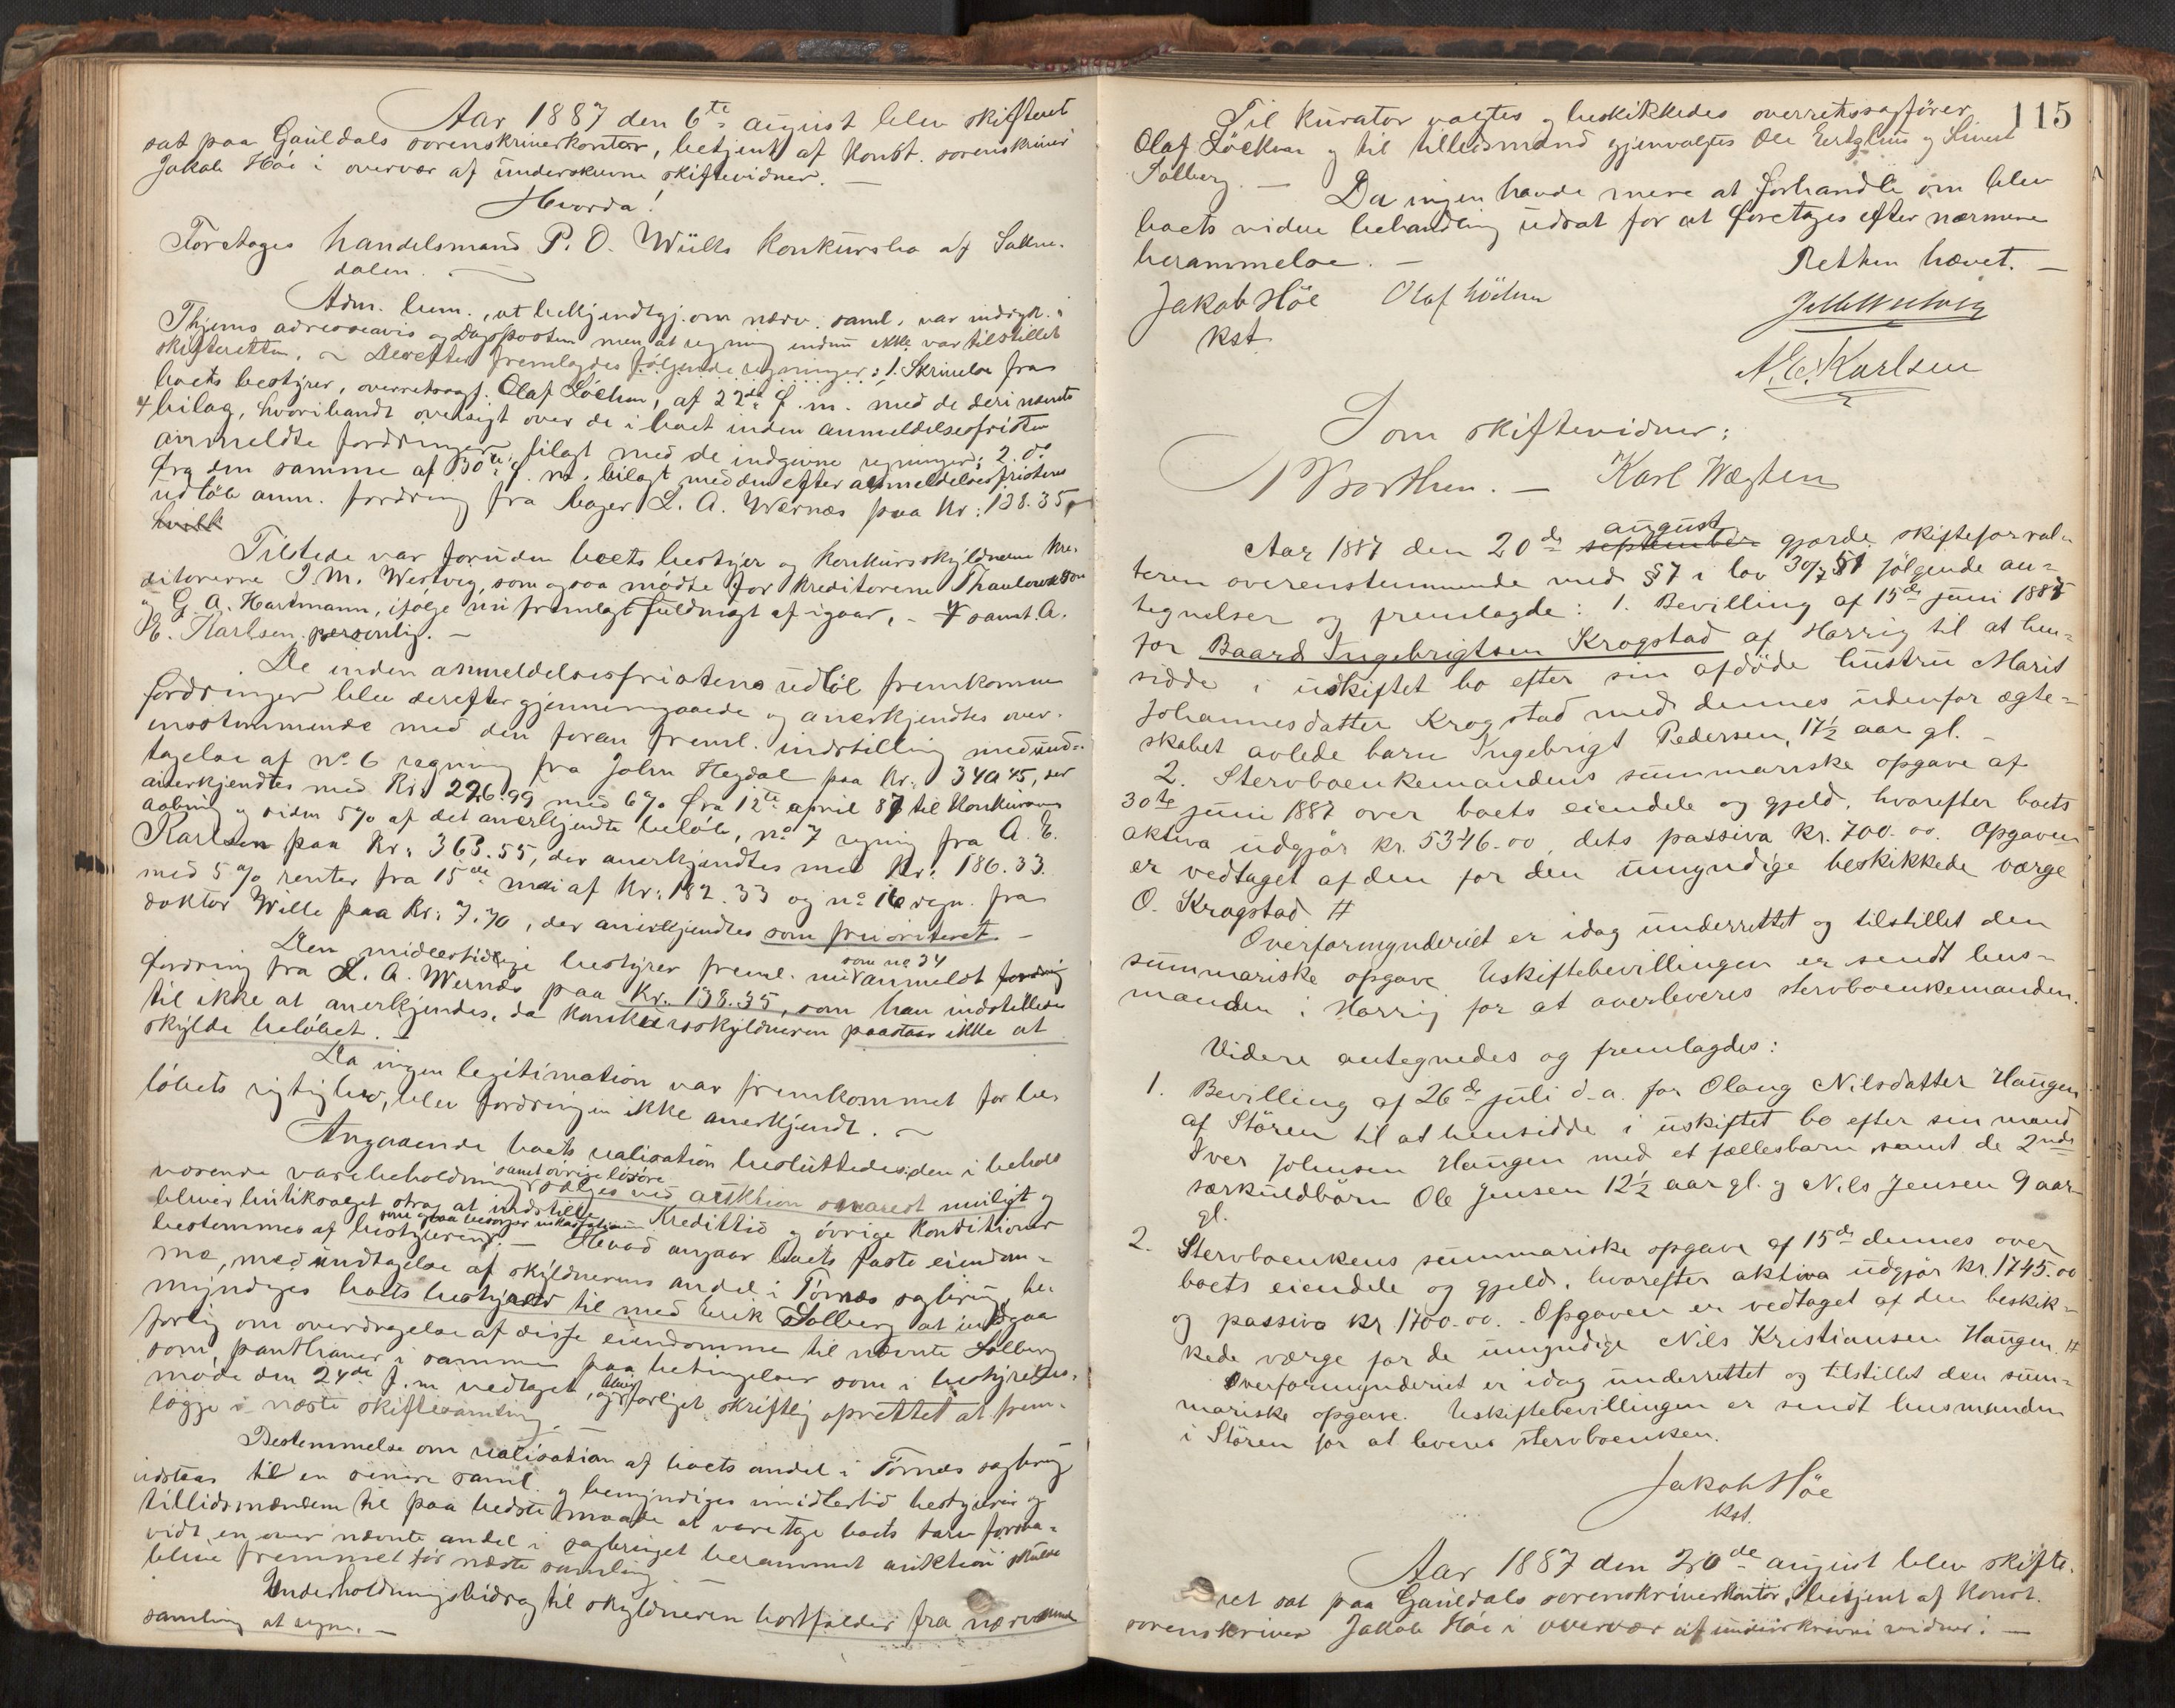 Aar 1887 den 6te august blev skifteret
sat paa Gauldals sorenskriverkontor, betjent af konst. sorenskriver
Jakob Höe i overvær af underskrevne skiftevidner. —
Hvorda!
Foretoges handelsmand P. O. Wülls konkursbo af Sokne-
dalen.
Adm. bem., at bekjendtgj. om nærv. saml. var indryk. i
Thjems adresseavis og Dagsposten men at regning endnu ikke var tilstillet
skifteretten. — Derefter fremlagdes følgende regninger: 1. Skrivelse fra
boets bestyrer, overretssagf. Olaf Löchen, af 22de f. m. med de deri nævnte
4 bilag, hvoriblandt oversigt over de i boet inden anmeldelsesfristen
anmeldte fordringer bilagt med de indgivne regninger; 2. do
fra den samme af 30te f. m. bilagt med den efter anmeldelsesfristens
udlöb anm. fordring fra bager L. A. Wernæs paa Kr: 138.35,
hvilk
Tilstede var foruden boets bestyrer og konkursskyldneren kre-
ditorerne I. M. Westvig, som ogsaa mødte for kreditorene Thaulow & Søn
og G. A. Hartmann, ifølge nu fremlagt fuldmagt af igaar, - samt A.
E. Karlsen personlig. —
De inden anmeldelsesfristens udlöb fremkomne
fordringer blev derefter gjennemgaaede og anerkjendtes over-
ensstemmende med den foran freml. indstilling med und-
tagelse af No 6 regning fra John Hegdal paa Kr: 340 45, der
anerkjendtes med Kr: 226.99 med 6% fra 12te april 87 til konkursens
aabning og siden 5% af det anerkjendte belöb, no 7 regning fra A. E.
Karlsen paa Kr: 363.55, der anerkjendtes med Kr: 186.33.
med 5% renter fra 15de mai af Kr: 182.33 og no 16 regn. fra
doktor Wille paa Kr: 7.70, der anerkjendtes som prioriteret. —
Den midlertidige bestyrer freml. som no 34 anmeldt fordring
fordring fra L. A. Wernæs paa Kr. 138.35, som han indstillede
til ikke at anerkjendes, da konkursskyldneren paastaar ikke at
skylde belöbet. —
Da ingen legitimation var fremkommet for be-
löbets rigtighed, blev fordringen ikke anerkjendt. —
Angaaende boets realisation besluttedes: den i behold
værende varebeholdning samt övrige lösöre sælges ved auktion snarest muligt og
bliver butiksalget strax at indstille Kredittid og övrige konditioner
bestemmes af bestyreren, som ogsaa besörger inkassation. — Hvad angaar boets faste eiendom-
me, med undtagelse af skyldnerens andel i Törnæs sagbrug, be-
myndiges boets bestyrer til med Erik Solberg at indgaa
forlig om overdragelse af disse eiendomme til nævnte Solberg
som panthaver i samme paa betingelser som i bestyrelses-
möde den 24de f. m. vedtaget, og bliver forliget skriftlig oprettet at frem-
lægge i næste skiftesamling.
Bestemmelse om realisation af boets andel i Törnæs sagbrug
udstaar til en senere saml. og bemyndiges imidlertid bestyreren og
tillidsmændene til paa bedste maade at varetage boets tarv forsaa-
vidt en over nævnte andel i sagbruget berammet auktion skulde
blive fremmet för næste samling.
Underholdningsbidrag til skyldneren bortfalder fra nærværende
samling at regne. —
115
Til kurator valgtes og beskikkedes overretssagförer
Olaf Löchen og til tillidsmænd gjenvalgtes Ole Ertzhus og Sivert
Solberg. — Da ingen havde mere at forhandle om blev
boets videre behandling udsat for at foretages efter nærmere
berammelse. —
Retten hævet. —
Jakob Höe Olaf Löchen
kst.
A. E. Karlsen
Som skiftevidner:
Borthen. — Karl Wægten
Aar 1887 den 20de september august gjorde skifteforval-
teren overensstemmende med §7 i lov 30/7 51 fölgende an-
tegnelser og fremlagde: 1. Bevilling af 15de juni 1887
for Baard Ingebrigtsen Krogstad af Horrig til at hen-
sidde i uskiftet bo efter sin afdöde hustru Marit
Johannesdatter Krogstad med dennes udenfor ægte-
skabet avlede barn Ingebrigt Pedersen, 17½ aar gl. —
2. Stervboenkemandens summariske opgave af
30te juni 1887 over boets eiendele og gjeld, hvorefter boets
aktiva udgjör kr. 5346.00, dets passiva kr. 700.00. Opgaven
er vedtaget af den for den umyndige beskikkede værge
O. Krogstad #
Overformynderiet er idag underrettet og tilstillet den
summariske opgave. Uskiftebevillingen er sendt lens-
manden i Horrig for at overleveres stervboenkemanden.
Videre antegnedes og fremlagdes:
1. Bevilling af 26de juli d. a. for Olaug Nilsdatter Haugen
af Stören til at hensidde i uskiftet bo efter sin mand
Iver Johnsen Haugen med et fællesbarn samt de 2nde
særkuldbörn Ole Jensen 12½ aar gl. og Nils Jensen 9 aar
gl.
2. Stervboenkens summariske opgave af 15de dennes over
boets eiendele og gjeld, hvorefter aktiva udgjör kr. 1745.00
og passiva kr 1700.00. - Opgaven er vedtaget af den beskik-
kede værge for de umyndige Nils Kristiansen Haugen. #
Overformynderiet er idag underrettet og tilstillet den sum-
mariske opgave. Uskiftebevillingen er sendt lensmanden
i Stören for at leveres stervboenken.
Jakob Höe
kst.
Aar 1887 den 20de august blev skifte-
ret sat paa Gauldals sorenskriverkontor, betjent af konst.
sorenskriver Jakob Höe i overvær af underskrevne vidner: —